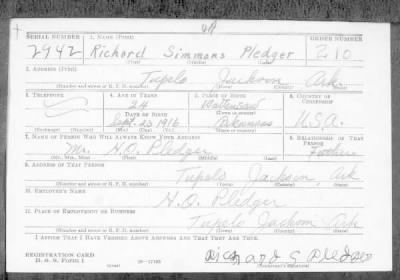 SERIAL NUMBER 1. NAME (Print) ORDER NUMBER
2942 Richard Simmons Pledger 210
(First) (Middle) (Last)
2. ADDRESS (Print)
Tupelo Jackson Ark.
(Number and street or R. F. D. number) (Town) (County) (State)
3. TELEPHONE 4. AGE IN YEARS 5. PLACE OF BIRTH 6. COUNTRY OF CITIZENSHIP
24
DATE OF BIRTH (Town or county)
Sept. 23 1916 Arkansas U.S.A.
(Exchange) (Number) (Mo.) (Day) (Yr.) (State or country)
7. NAME OF PERSON WHO WILL ALWAYS KNOW YOUR ADDRESS 8. RELATIONSHIP OF THAT PERSON
Mr. H.O. Pledger Father
(Mr., Mrs., Miss) (First) (Middle) (Last)
9. ADDRESS OF THAT PERSON
Tupelo Jackson Ark
(Number and street or R. F. D. number) (Town) (County) (State)
10. EMPLOYER'S NAME
H.O. Pledger
11. PLACE OF EMPLOYMENT OR BUSINESS
Tupelo Jackson Ark
(Number and street or R. F. D. number) (Town) (County) (State)
I AFFIRM THAT I HAVE VERIFIED ABOVE ANSWERS AND THAT THEY ARE TRUE.
REGISTRATION CARD
D. S. S. Form 1 Richard S Pledger
(over) (Registrant's signature)